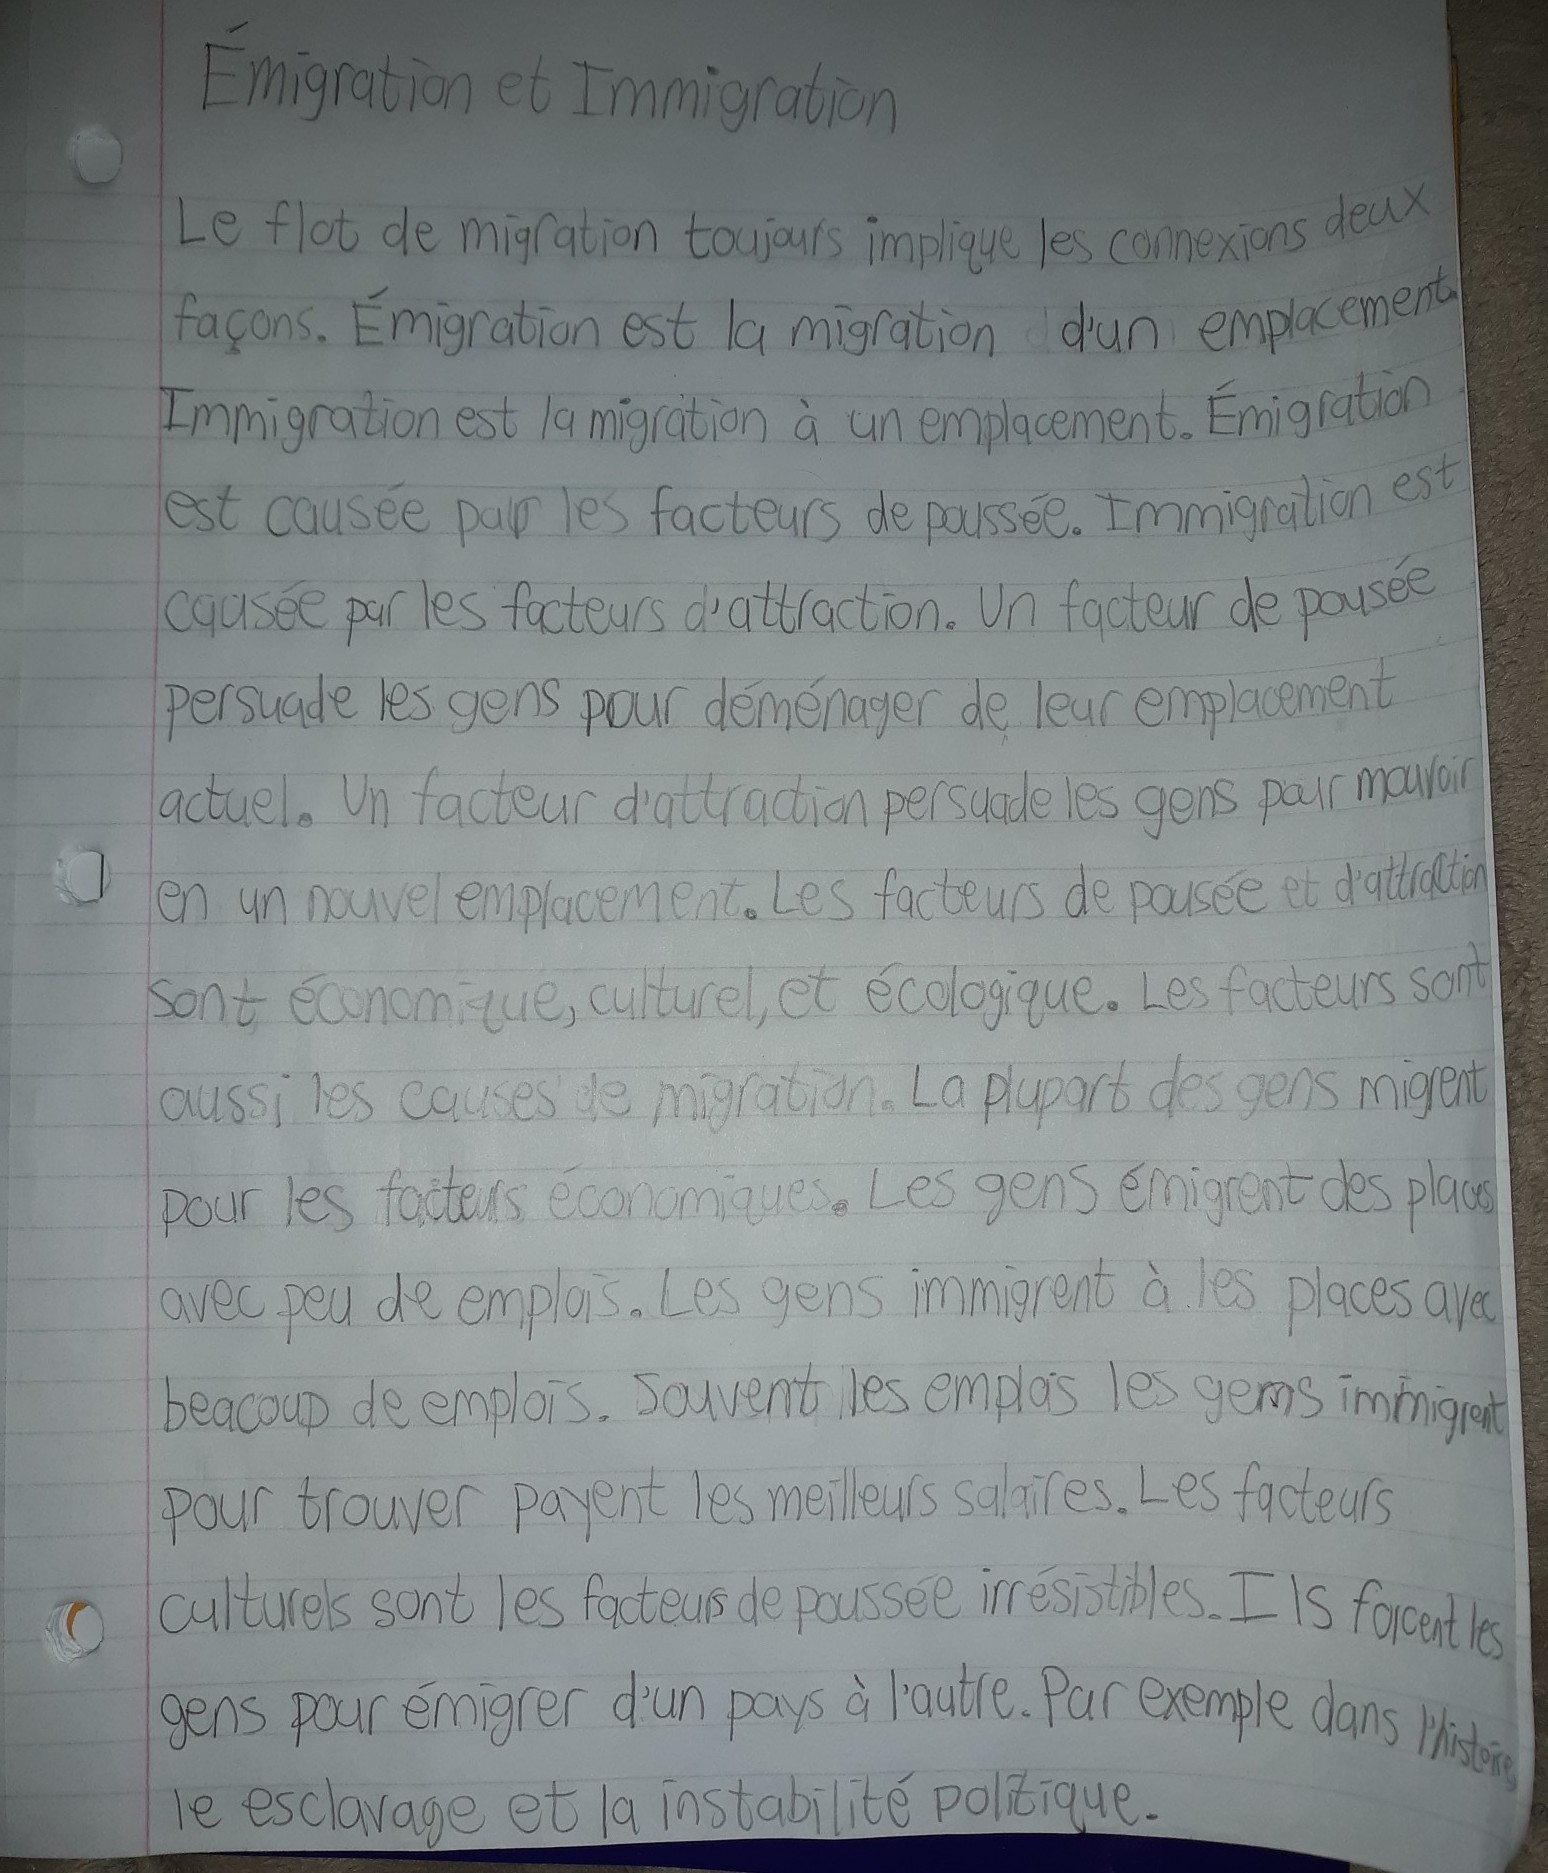 Émigration et Immigration
Le flot de migration toujours implique les connexions deux
façons. Émigration est la migration d'un emplacement.
Immigration est la migration à un emplacement. Émigration
est causée par les facteurs de poussée. Immigration est
causée par les facteurs d'attraction. Un facteur de pousée
persuade les gens pour déménager de leur emplacement
actuel. Un facteur d'attraction persuade les gens pour mouvoir
en un nouvel emplacement. Les facteurs de pousée et d'attraction
sont économique, culturel, et écologique. Les facteurs sont
aussi les causes de migration. La plupart des gens migrent
pour les facteurs économiques. Les gens émigrent des places
avec peu de emplois. Les gens immigrent à les places avec
beacoup de emplois. Souvent les emplois les gens immigrent
pour trouver payent les meilleurs salaires. Les facteurs
culturels sont les facteurs de poussée irrésistibles. Ils forcent les
gens pour émigrer d'un pays à l'autre. Par exemple dans l'histoire,
le esclavage et la instabilité politique.